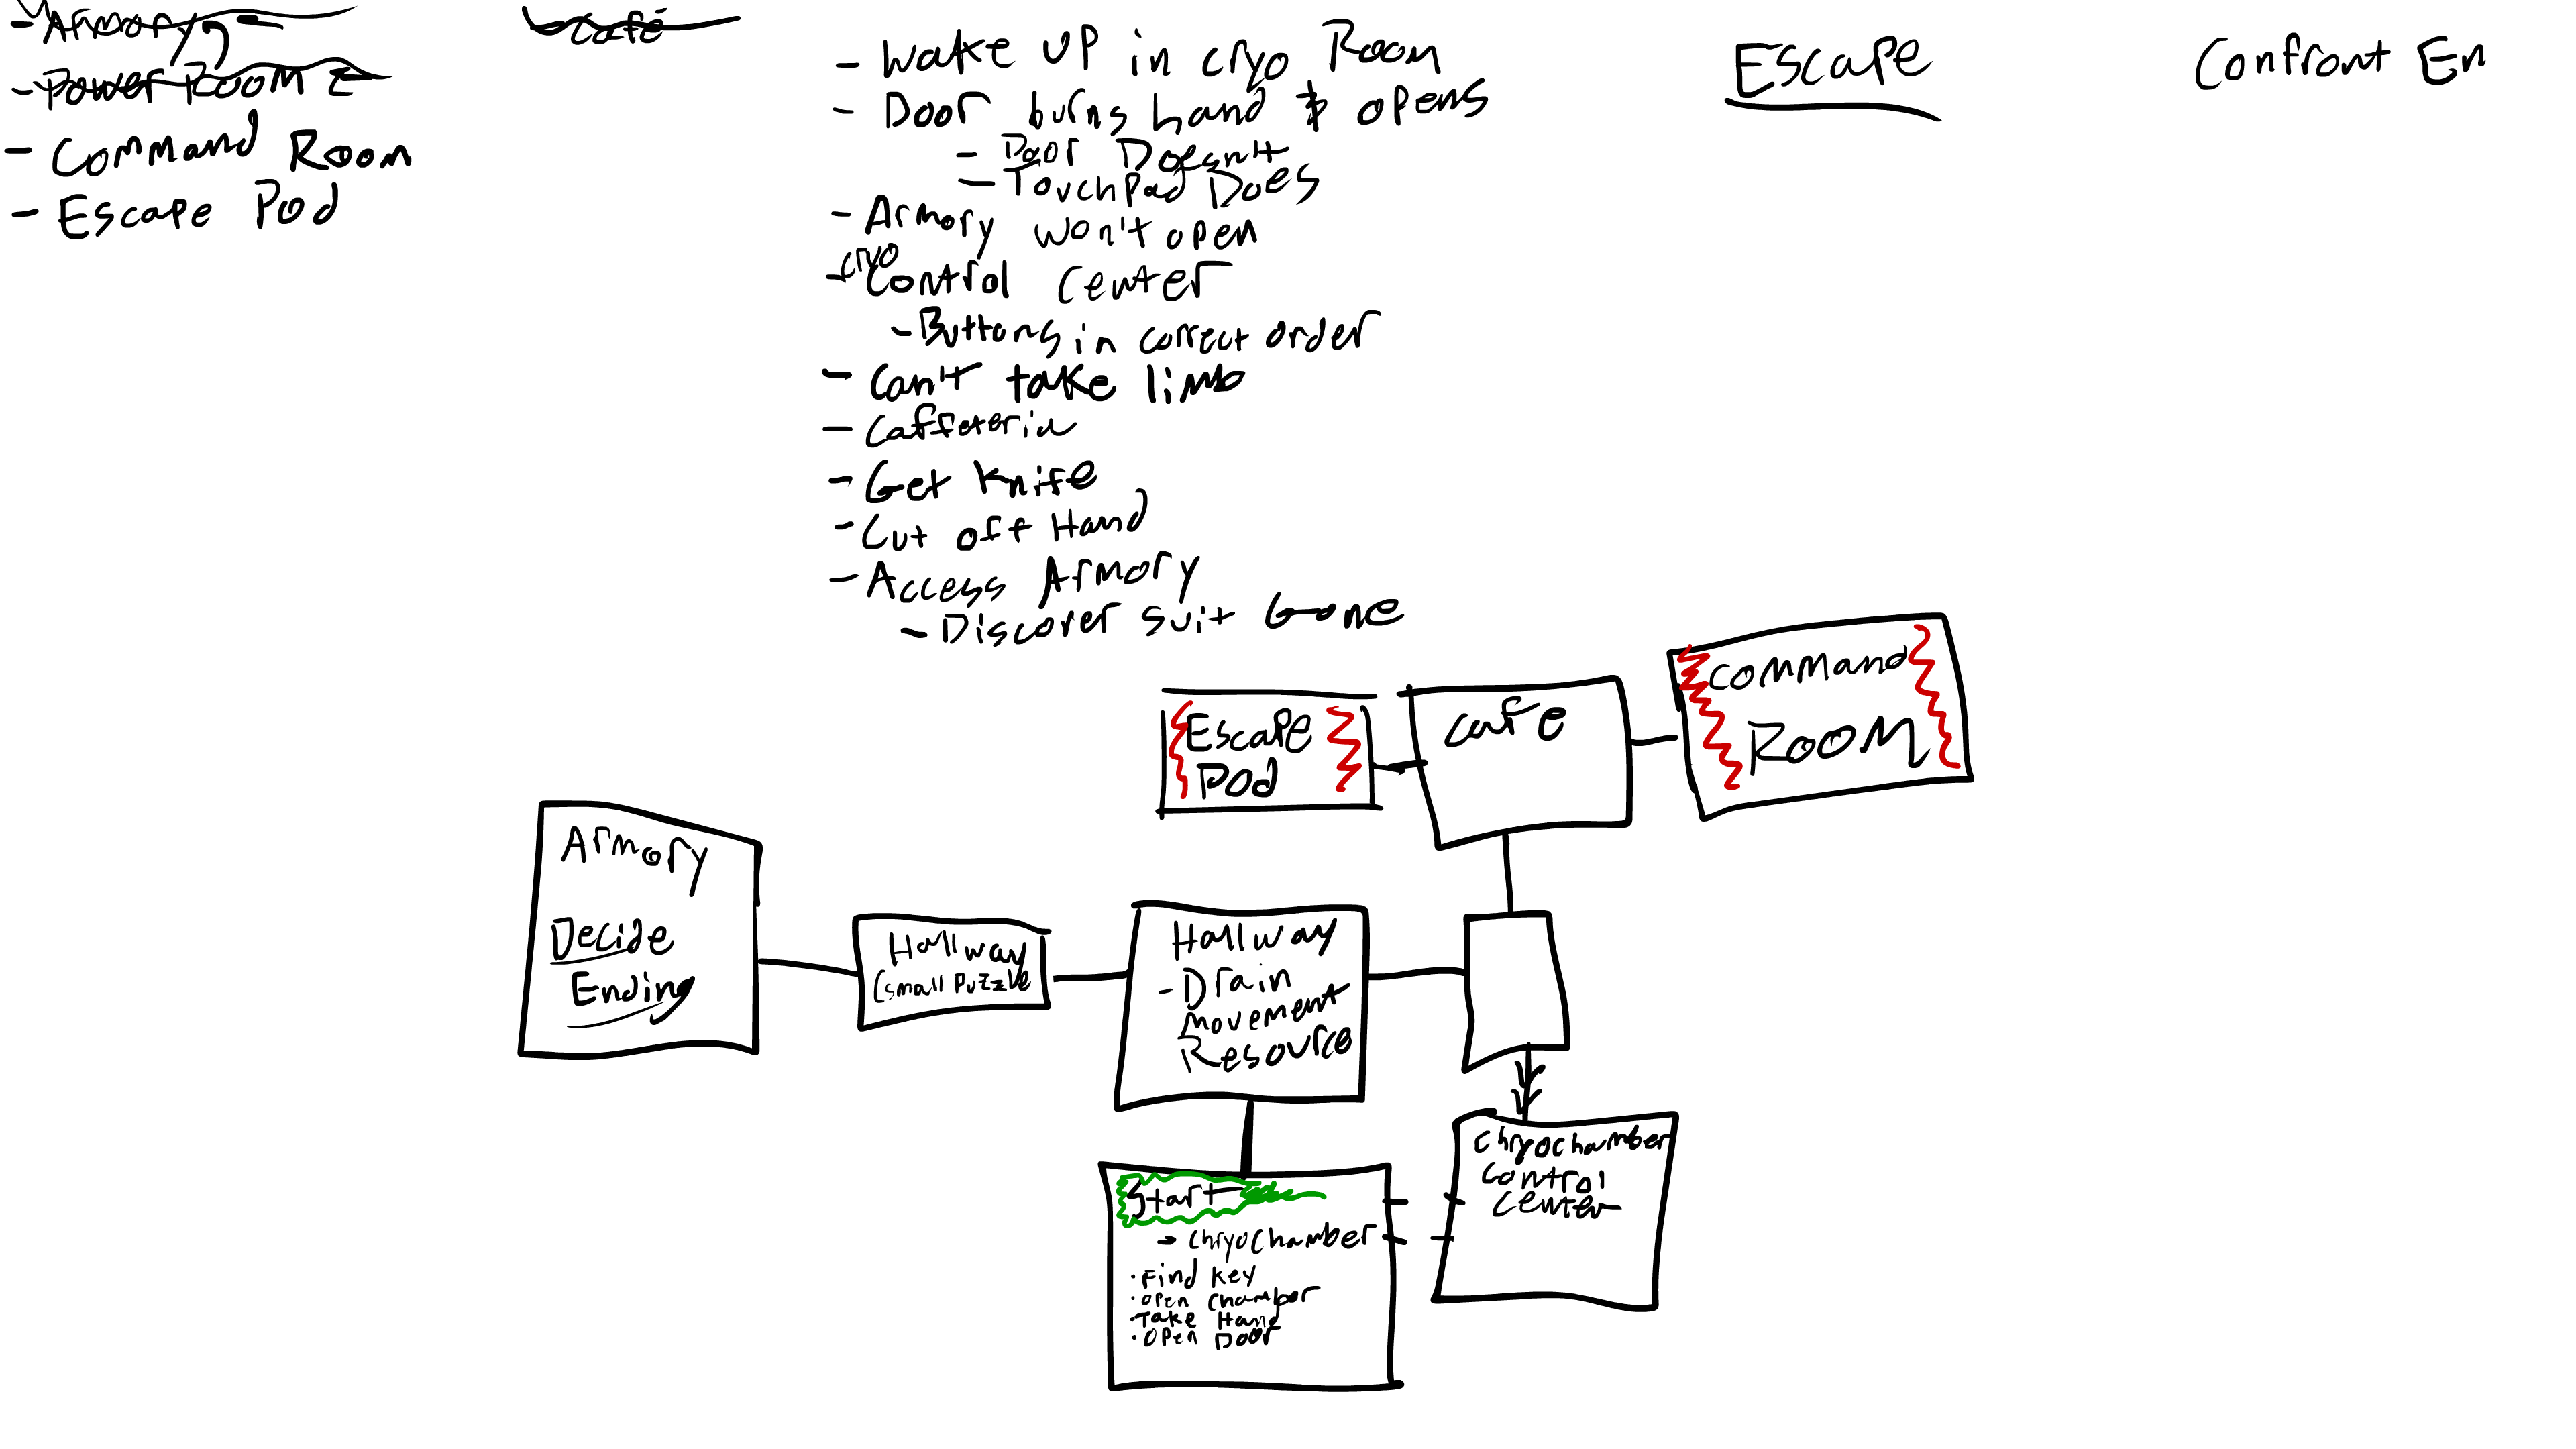 - Armory
- Power Room
- Command Room
- Escape Pod
Café
- Wake up in cryo Room
- Door burns hand & opens
- Door Doesn't
- Touchpad Does
- Armory won't open
cryo
- Control Center
- Buttons in correct order
- Can't take limb
- Caffeteria
- Get Knife
- Cut off Hand
- Access Armory
- Discover suit Gone
Escape
Confront En
Escape
Pod
Cafe
Command
Room
Armory
Decide
Ending
Hallway
(small Puzzle
Hallway
- Drain
Movement
Resource
Start
→ Chryochamber
• Find key
• open chamber
• Take Hand
• open Door
Chryochamber
Control
Center